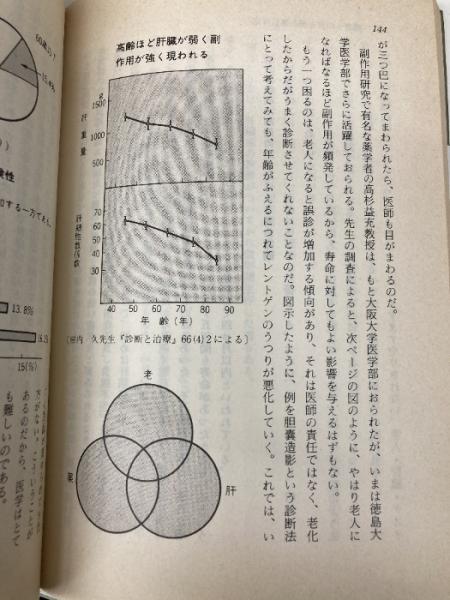 144
が三つ巴になってまわられたら、医師も目がまわるのだ。
副作用研究で有名な薬学者の高杉益充教授は、もと大阪大学医学部におられたが、いまは徳島大
学医学部でさらに活躍しておられる。先生の調査によると、次ページの図のように、やはり老人に
なればなるほど副作用が頻発しているから、寿命に対してもよい影響を与えるはずもない。
もう一つ困るのは、老人になると誤診が増加する傾向があり、それは医師の責任ではなく、老化
したからだがうまく診断させてくれないことなのだ。図示したように、例を胆嚢造影という診断法
にとって考えてみても、年齢がふえるにつれてレントゲンのうつりが悪化していく。これでは、い
高齢ほど肝臓が弱く副
作用が強く現われる
g
1500
1000
500
肝重量
70
60
50
40
30
40 50 60 70 80 90
年 齢 (年)
内 久先生『診断と治療』66(4)2による〕
老
薬
肝
13.8%
15(%)
あるのだから、医学はとて
も難しいのである。